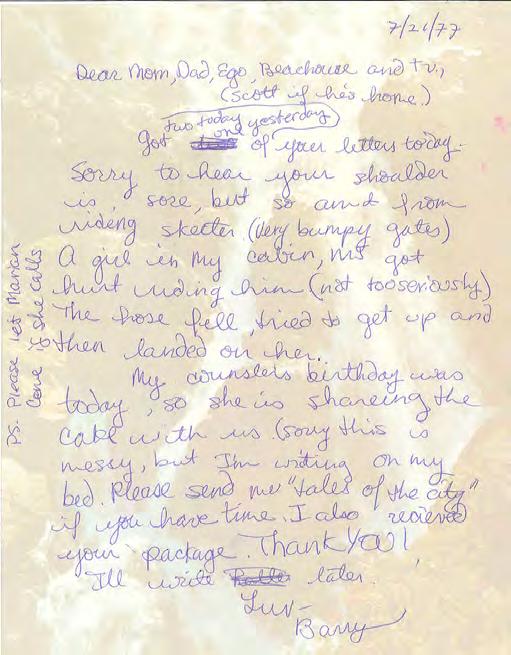 7/21/77
Dear Mom, Dad, Ego, Beachouse and t.v.,
(Scott if he's home.)
two today one yesterday
Got of your letters today.
Sorry to hear your shoulder
is sore, but so am I from
rideng skeeter. (Very bumpy gates)
A girl in my cabin, got
hurt riding him (not too seriously)
The hose fell, tried to get up and
then landed on her..
My counslers birthday was
today, so she is shareing the
cake with us. (sorry this is
messy, but I'm writing on my
bed. Please send me "tales of the city"
if you have time. I also recieved
your package. Thank YOU!
I'll write later.
Luv-
Barry
PS. Please let Marian
Come if she calls